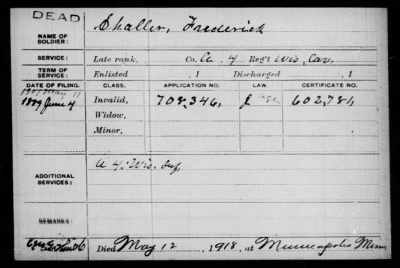 DEAD
NAME OF SOLDIER: Challer, Frederick
SERVICE: Late rank, Co. A 4 Reg't Wis. Cav.
TERM OF SERVICE: Enlisted , 1 Discharged , 1
DATE OF FILING. CLASS. APPLICATION NO. LAW. CERTIFICATE NO.
May 11
1889 June 4 Invalid, 708,346, 602,781,
Widow,
Minor,
ADDITIONAL SERVICES: A 4" Wis. Inf.
REMARKS:
Died May 12, 1918, at Minneapolis Minn